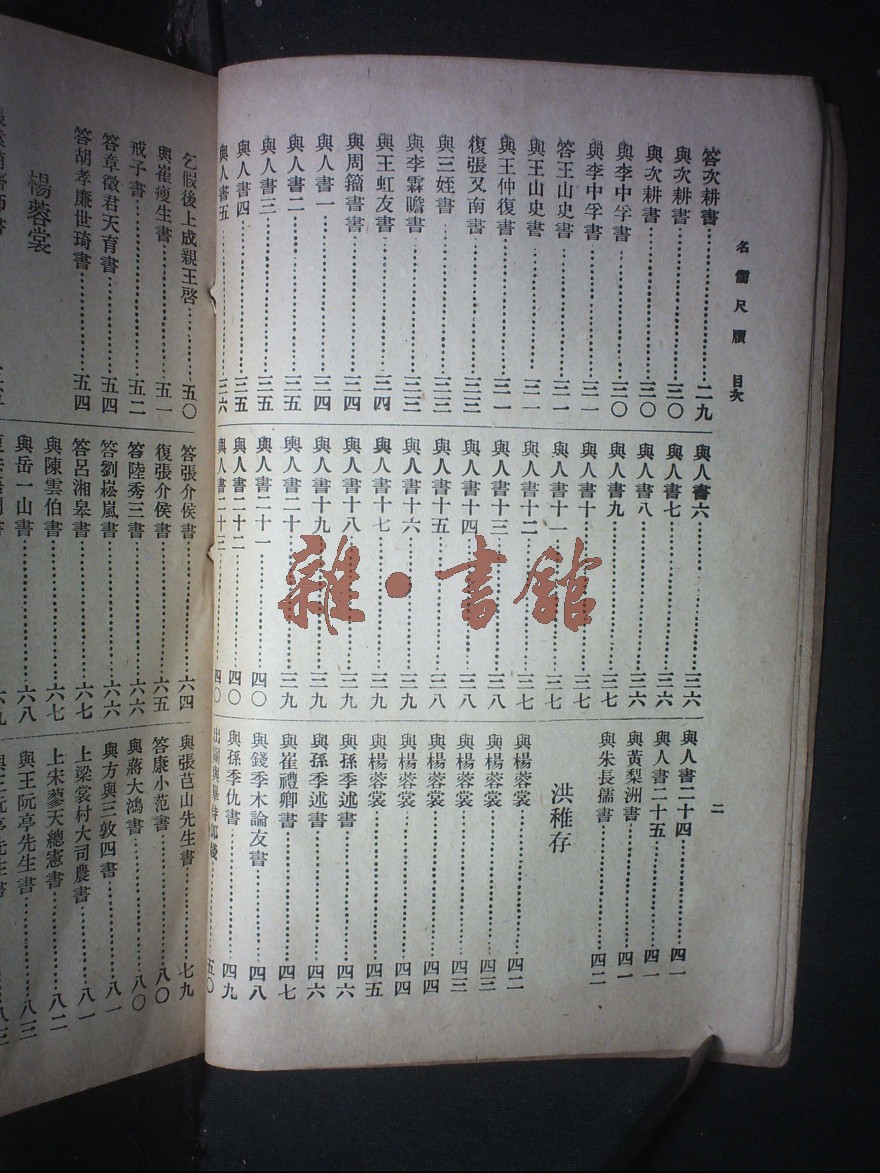 名儒尺牘 目次
二
答次耕書……二九
與次耕書……三〇
與次耕書……三〇
與李中孚書……三〇
與李中孚書……三一
答王山史書……三一
與王山史書……三一
與王仲復書……三一
復張又南書……三三
與三姪書……三三
與李霖瞻書……三三
與王虹友書……三四
與周籀書書……三四
與人書一……三四
與人書二……三五
與人書三……三五
與人書四……三五
與人書五……三六
與人書六……三六
與人書七……三六
與人書八……三六
與人書九……三七
與人書十……三七
與人書十一……三七
與人書十二……三七
與人書十三……三八
與人書十四……三八
與人書十五……三八
與人書十六……三九
與人書十七……三九
與人書十八……三九
與人書十九……三九
與人書二十……三九
與人書二十一……四〇
與人書二十二……四〇
與人書二十三……四〇
與人書二十四……四一
與人書二十五……四一
與黃梨洲書……四一
與朱長孺書……四二
洪稚存
與楊蓉裳……四二
與楊蓉裳……四三
與楊蓉裳……四三
與楊蓉裳……四四
與楊蓉裳……四四
與楊蓉裳……四五
與孫季述書……四六
與孫季述書……四六
與崔禮卿書……四七
與錢季木論友書……四八
與孫季仇書……四九
出關與畢侍郎牋……五〇
乞假後上成親王啓……五〇
與崔瘦生書……五一
戒子書……五二
答章徵君天育書……五四
答胡孝廉世琦書……五四
楊蓉裳
答張介侯書……六四
復張介侯書……六五
答陸秀三書……六六
答劉崧嵐書……六六
答呂湘皋書……六七
與陳雲伯書……六七
與岳一山書……六八
六九
與張芭山先生書……七九
答康小范書……八〇
與蔣大鴻書……八〇
與方與三敦四書……八一
上梁裳村大司農書……八一
上宋蓼天總憲書……八二
與王阮亭先生書……八三
與王阮亭先生書
雜·書館